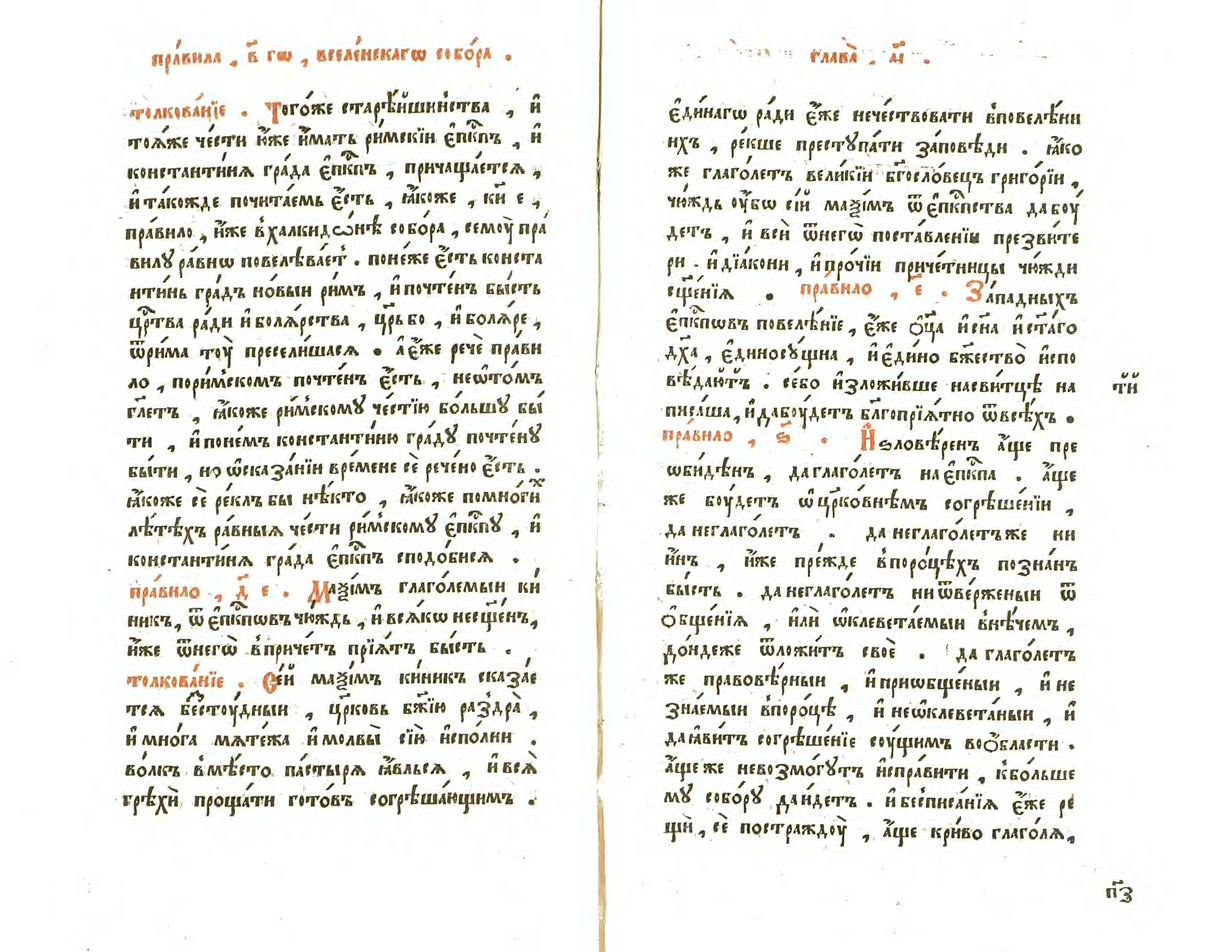 пра́вила , в҃ гѡ , вселе́нскагѡ собо́ра .
толкова́нїе . Тогѡ́же старѣ́йшинства , и҆
тоя́же че́сти и҆́же и҆́мать ри́мскїи є҆пⷭ҇кпъ , и҆
константи́ня гра́да є҆пⷭ҇кпъ , причаща́ется ,
и҆ та́кожде почита́емь є҆́сть , ꙗ҆́коже , к҃и е ,
пра́вило , и҆́же в халкидѡ́нѣ собо́ра , семоу̀ пра́
вилꙋ ра́внѡ повелѣва́етъ . поне́же є҆́сть конста
нти́нь гра́дъ но́выи ри́м , и҆ почте́н бы́сть
црⷭ҇тва ра́ди и҆ боля́рства , цр҃ь бо , и҆ боля́ре ,
ѿ ри́ма тоу̀ пресели́шася . а҆ є҆́же речѐ пра́ви
ло , по ри́мском почте́нъ є҆́сть , не ѡ҆ то́мъ
гл҃етъ , ꙗ҆́коже ри́мскомꙋ че́стїю бо́льшꙋ бы́
ти , и҆ по не́мъ константи́ню гра́дꙋ почте́нꙋ
бы́ти , но ѡ҆ сказа́нїи вре́мене сѐ рече́но є҆́сть .
ꙗ҆́коже сѐ ре́клъ бы нѣ́кто , ꙗ҆́коже по мно́гиⷯ
лѣ́тѣхъ ра́вныя че́сти ри́мскомꙋ є҆пⷭ҇кпꙋ , и҆
константи́ня гра́да є҆пⷭ҇кпъ сподо́бися .
пра́вило , д҃ е . Маѯі́мъ глаго́лемыи ки́
никъ , ѿ є҆пⷭ҇кпѡвъ чю́ждь , и҆ вся́кѡ не сщ҃е́нъ ,
и҆́же ѿ негѡ̀ в при́четъ прїя́тъ бы́сть .
толкова́нїе . Се́й маѯі́мъ ки́никъ сказа́е
тся бесⷭ҇тоу́дныи , цр҃ковь бж҃їю раздра̀ ,
и҆ мно́га мяте́жа и҆ молвы̀ сїю̀ и҆спо́лни .
во́лкъ в мѣ́сто па́стыря ꙗ҆́влься , и҆ вся̀
грѣхѝ проща́ти гото́въ согрѣша́ющимъ .
глава̀ . а҃і .
є҆ди́нагѡ ра́ди є҆́же нече́ствовати в повелѣ́нїи
и́хъ , ре́кше престꙋпа́ти за́повѣди . ꙗ҆́ко
же глаго́летъ вели́кїи бг҃осло́вець григо́рїи ,
чю́ждь оу҆́бѡ сі́й маѯі́мъ ѿ є҆пⷭ҇кпства да боу́
детъ , и҆ всѝ ѿ негѡ̀ поста́вленїи презви́те
ри . и҆ дїа́кони , и҆ про́чїи приче́тницы чю́жди
сщ҃е́нїя . пра́вило , е҃ . За́падныхъ
є҆пⷭ҇кпѡвъ повелѣ́нїе , є҆́же ѻ҆ц҃а̀ и҆ сн҃а и҆ ст҃а́го
дх҃а , є҆диносоу́щна , и҆ є҆ди́но бж҃ество̀ и҆спо
вѣ́даютъ . се́бо и҆зложи́вше на сви́тцѣ на т҃и
писа́ша , и҆ да боу́детъ бл҃гопрїя́тно ѿ всѣ́хъ .
пра́вило , ѕ҃ . И҆ ѕловѣ́ренъ а҆́ще пре
ѡ҆би́дѣнъ , да глаго́летъ на є҆пⷭ҇кпа . а҆́ще
же боу́детъ ѡ҆ цр҃ко́внѣмъ согрѣше́нїи ,
да не глаго́летъ . да не глаго́летъ же ни
и҆́нъ , и҆́же пре́жде в поро́цѣхъ позна́нъ
бы́сть . да не глаго́летъ ни ѿве́рженыи ѿ
ѻ҆бще́нїя , и҆лѝ ѡ҆клевета́емыи в не́чемъ ,
до́ндеже ѿложи́тъ своѐ . да глаго́летъ
же правовѣ́рныи , и҆ приѡбще́ныи , и҆ не
зна́емыи в поро́цѣ , и҆ не ѡ҆клевета́ныи , и҆
да ꙗ҆ви́тъ согрѣше́нїе соу́щимъ во ѻ҆́бласти .
а҆́ще же не возмо́гꙋтъ и҆спра́вити , к бо́льше
мꙋ собо́рꙋ да и҆́детъ . и҆ бес писа́нїя є҆́же ре
щѝ , сѐ постражди́ , а҆́ще кри́во глаго́ля ,
п҃з